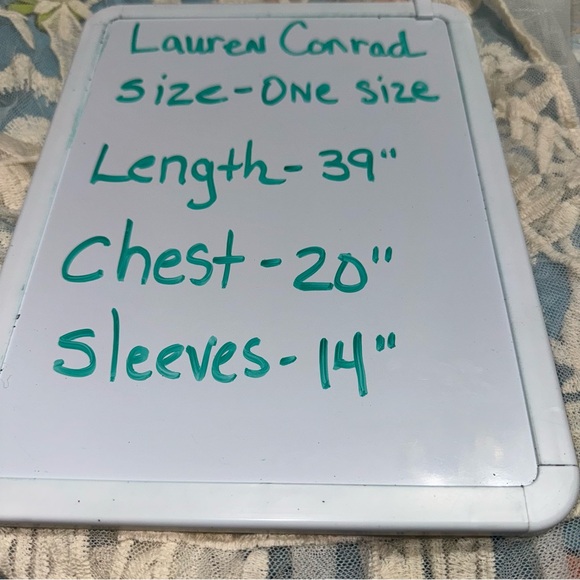 Lauren Conrad
Size-One Size
Length- 39"
Chest - 20"
Sleeves- 14"